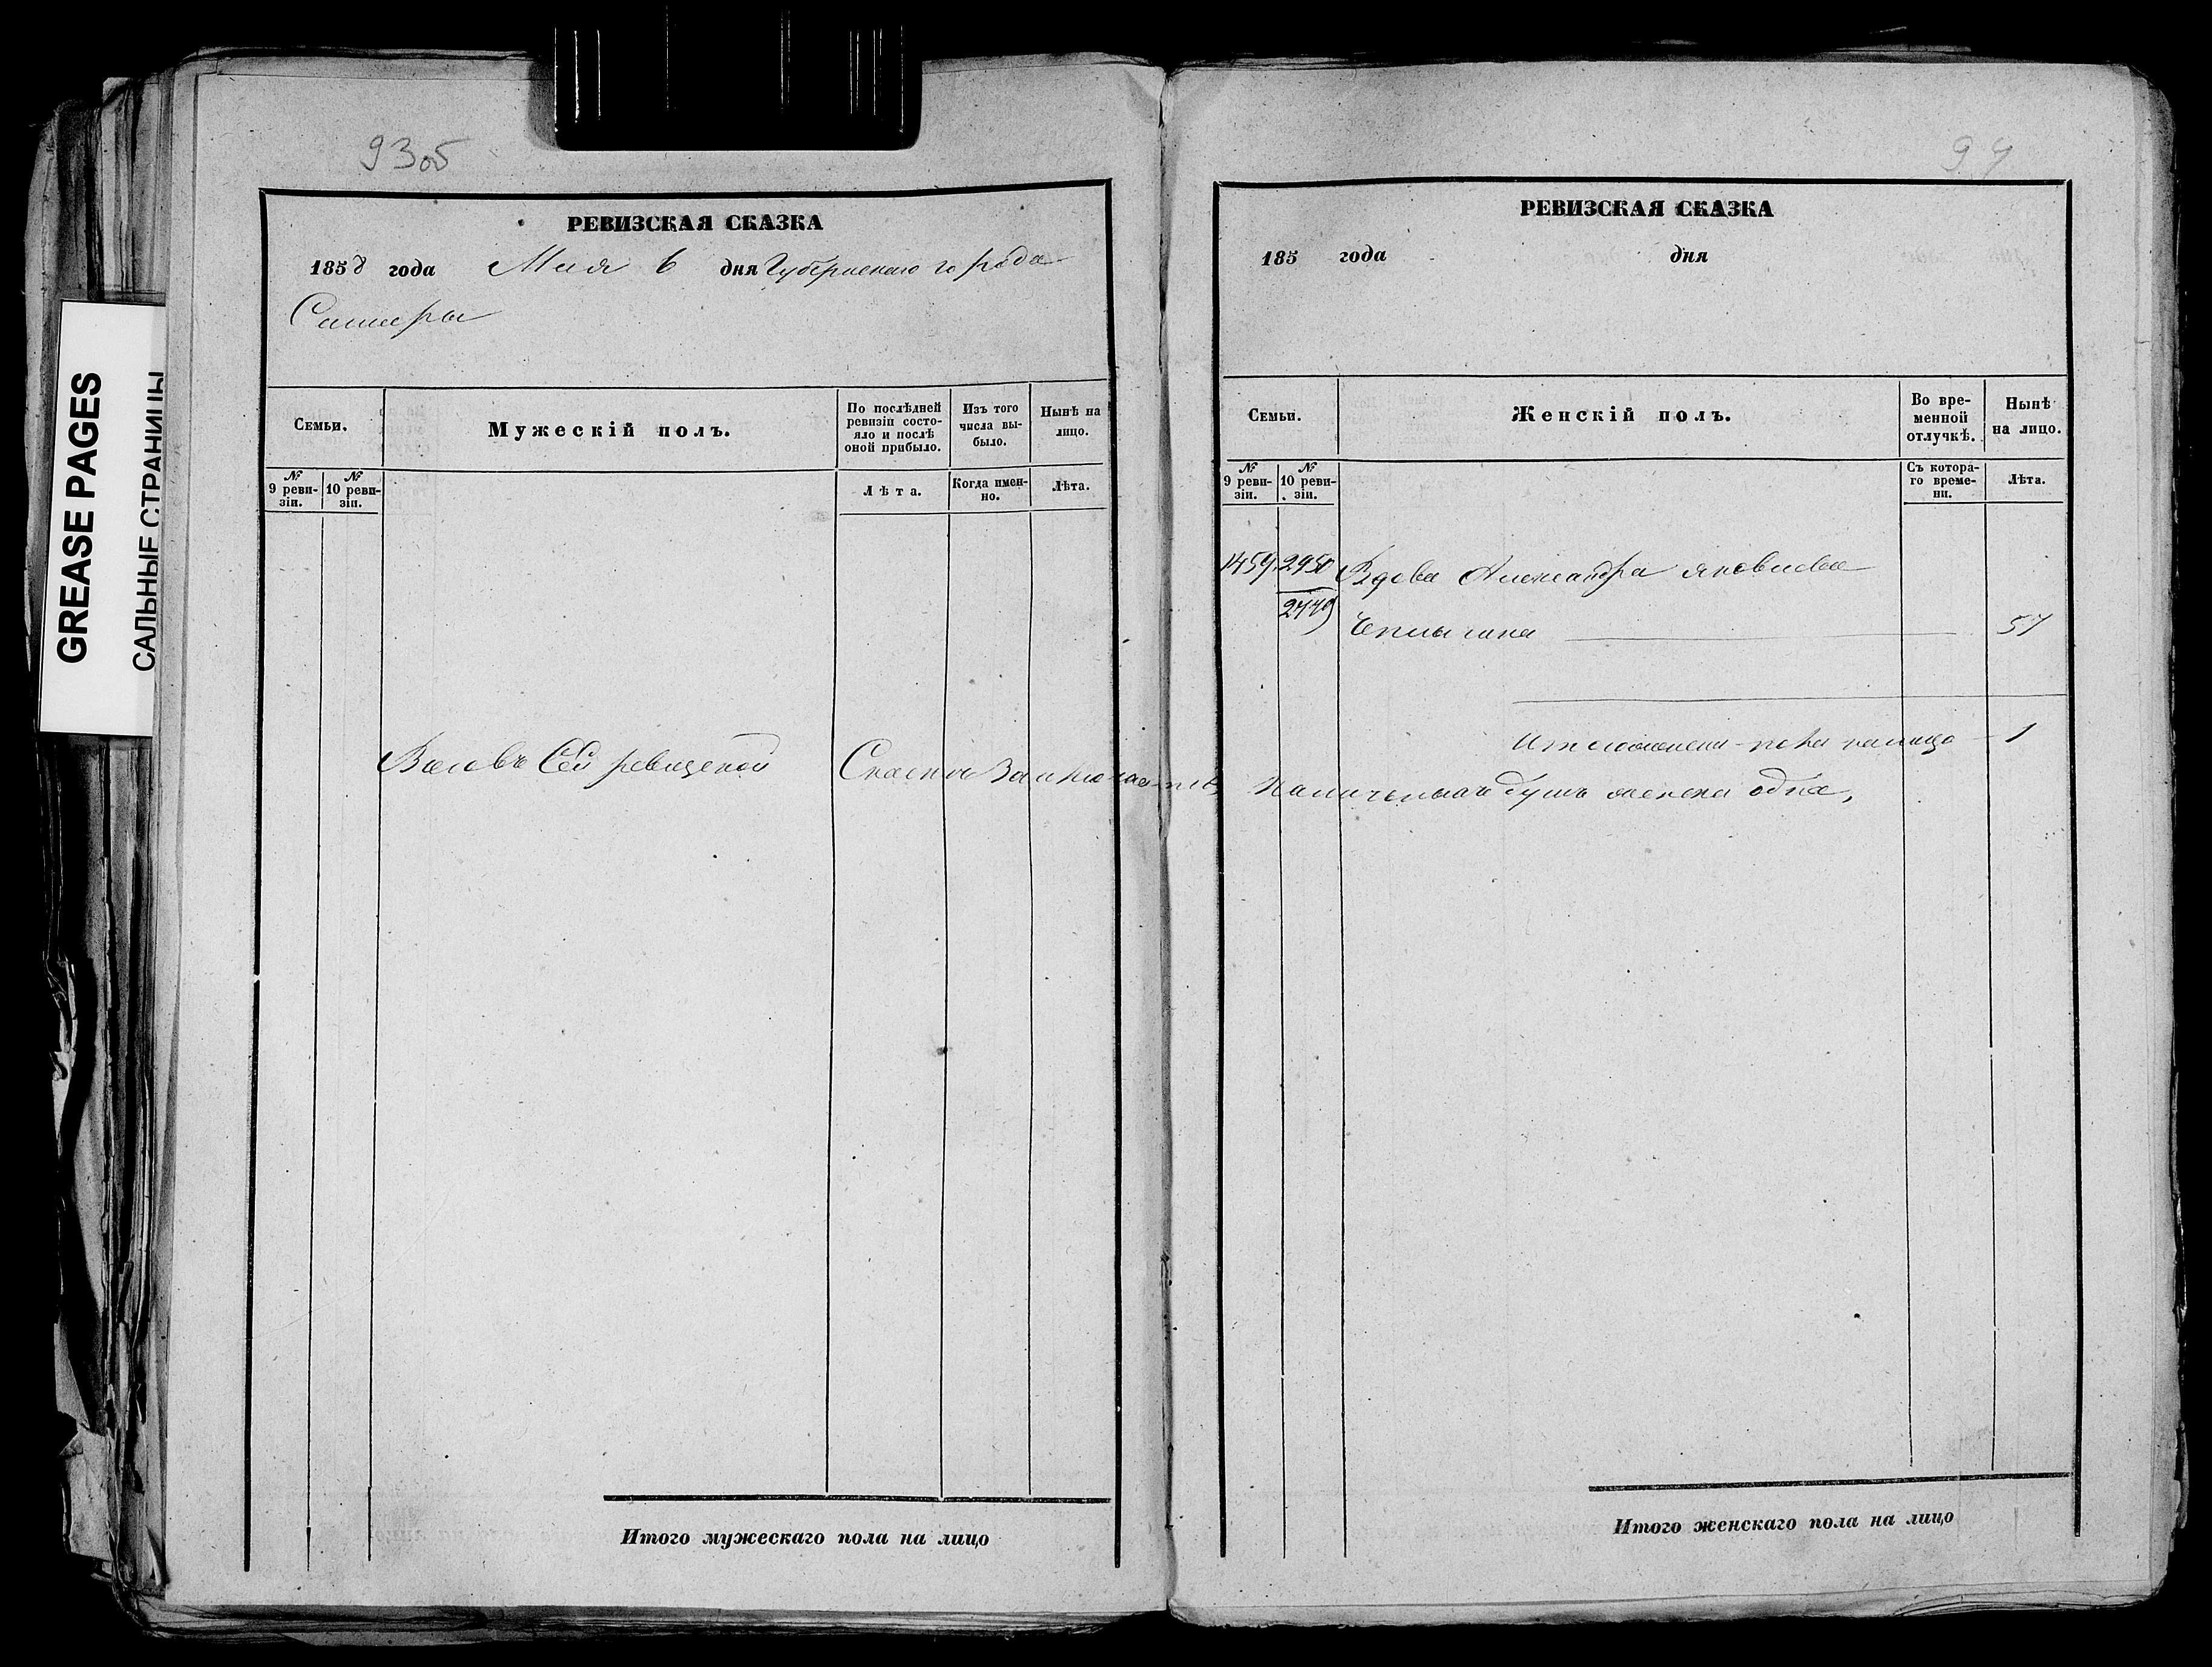 93об
РЕВИЗСКАЯ СКАЗКА
1858 года Мая 6 дня Губернскаго города
Самары
Семьи.
Мужескій полъ.
По послѣдней ревизіи состояло и послѣ оной прибыло.
Изъ того числа выбыло.
Нынѣ на лицо.
№ 9 ревизіи.
№ 10 ревизіи.
Лѣта.
Когда именно.
Лѣта.
Итого мужескаго пола на лицо
94
РЕВИЗСКАЯ СКАЗКА
185 года дня
Семьи.
Женскій полъ.
Во временной отлучкѣ.
Нынѣ на лицо.
№ 9 ревизіи.
№ 10 ревизіи.
Съ котораго времени.
Лѣта.
1459 2950 Вдова Александра Яковлева
2779 57
Итого женска пола налицо 1
Всего въ сей ревизской Сказке Заключается наличныхъ душъ женска одна,
Итого женскаго пола на лицо
GREASE PAGES
САЛЬНЫЕ СТРАНИЦЫ